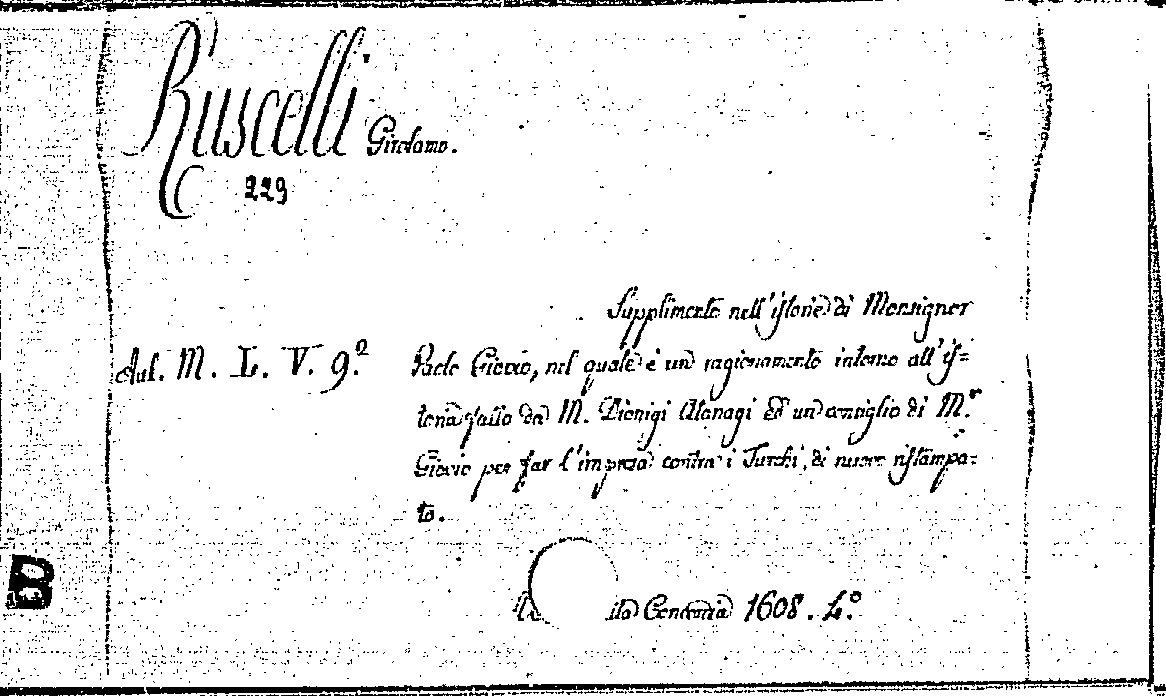 Ruscelli Girolamo.
229
Supplimento nell'istorie di Monsignor
Aul. M. L. V. 9.º Paolo Giovio, nel quale è un ragionamento intorno all'is=
toria fatto da M. Dionigi Atanagi ed un consiglio di M.r
Giovio per far l'impresa contra i Turchi, di nuovo ristampa=
to.
alla Concordia 1608. 4.º
B